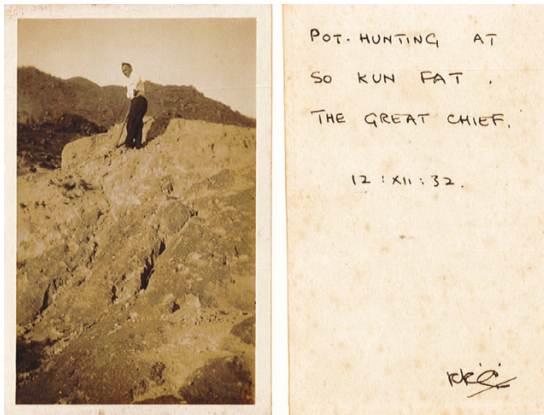 POT-HUNTING AT
SO KUN FAT.
THE GREAT CHIEF.
12:XII:32.